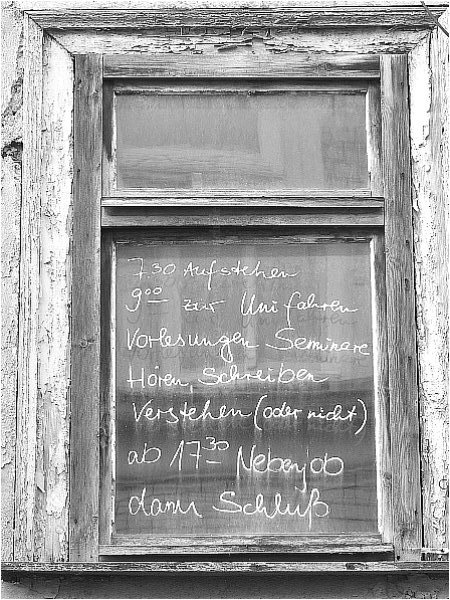 7.30 Aufstehen
9.00 zur Uni fahren
Vorlesungen Seminare
Hören, Schreiben
Verstehen (oder nicht)
ab 17.30 Nebenjob
dann Schluß